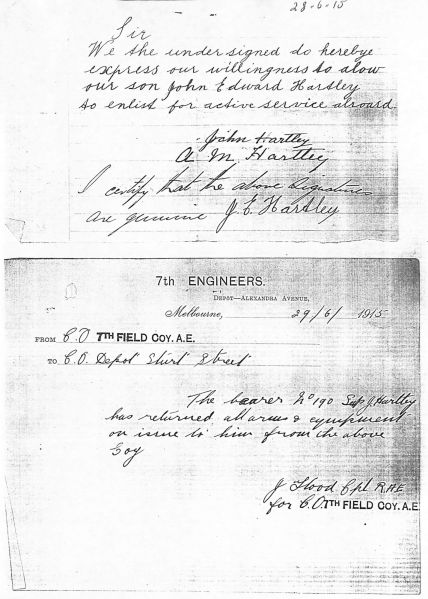 28-6-15
Sir
We the under signed do herebye
express our willingness to alow
our son John Edward Hartley
to enlist for active service abroard.
John Hartley
A M Hartley
I certify that the above Signatures
are genuine J. E. Hartley
7th ENGINEERS.
DEPOT—ALEXANDRA AVENUE,
Melbourne, 29/6/1915
FROM C.O 7TH FIELD COY. A.E.
TO C.O. Depot Sturt Street
The bearer No 190 Sap J Hartley
has returned all arms & equipment
on issue to him from the above
Coy
J Flood Cpl RAE
for C.O. 7TH FIELD COY. A.E.